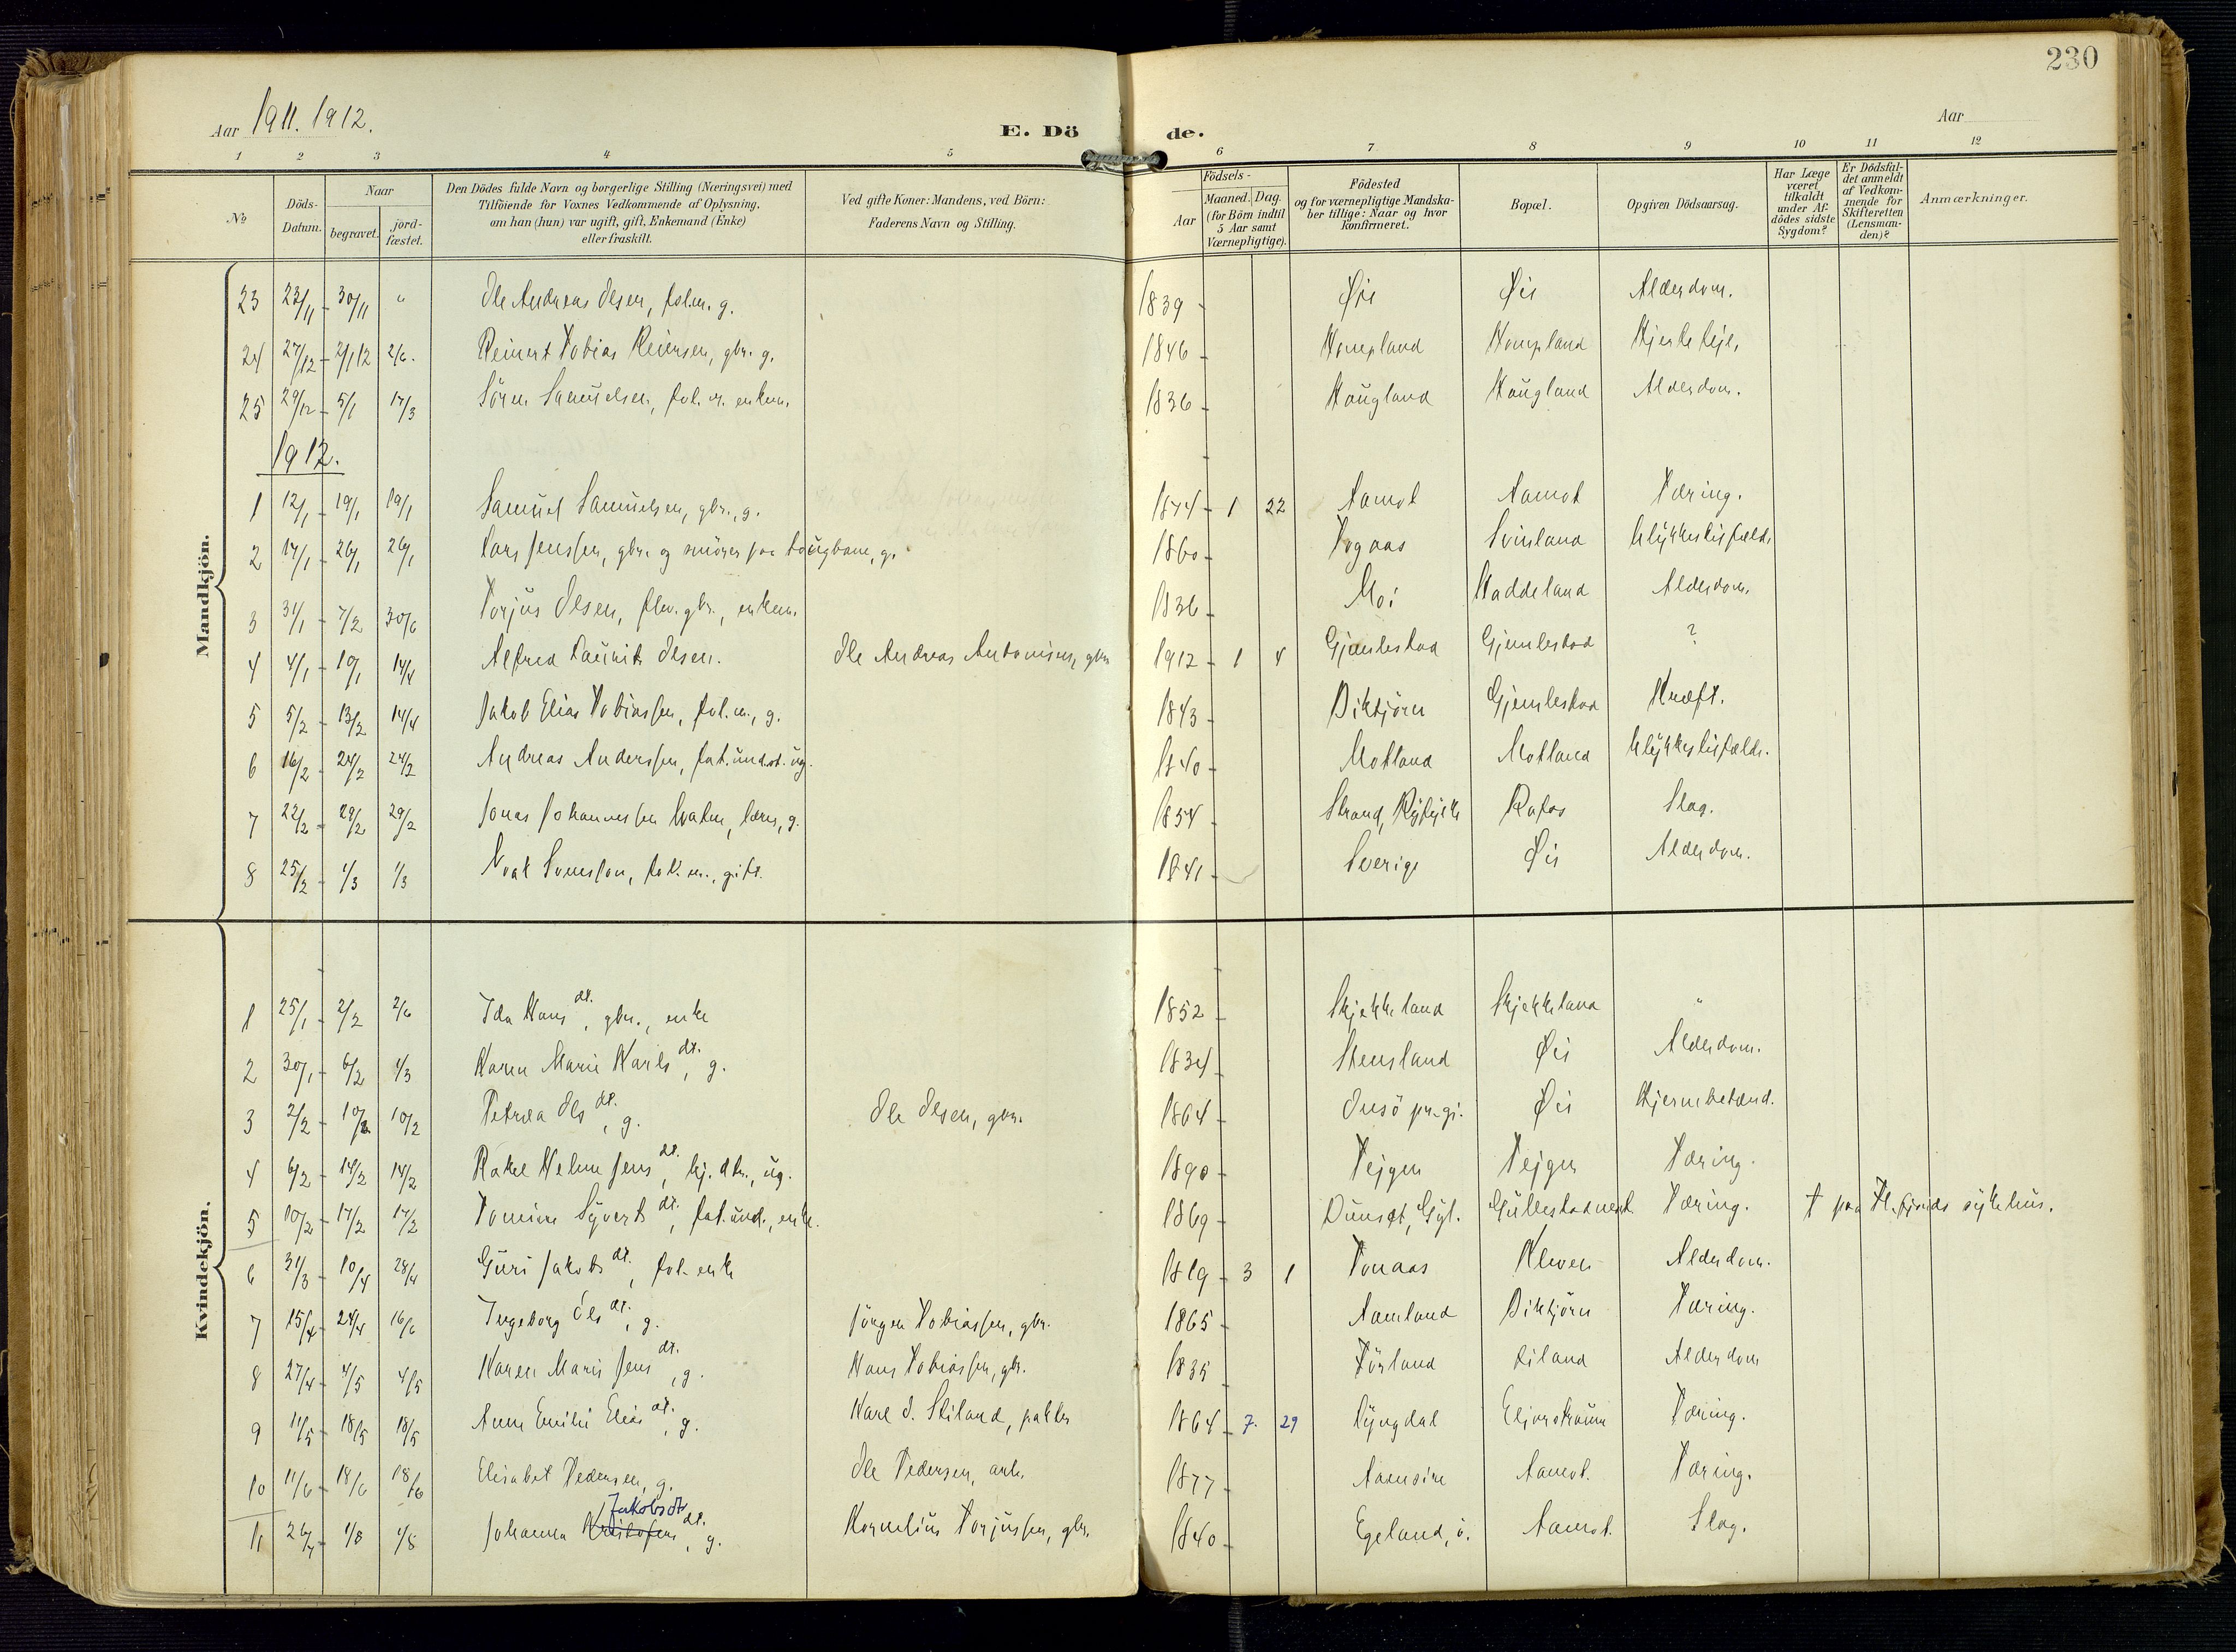 230
Aar 1911. 1912.
E. Dö de.
Aar
1 2 3 4 5 6 7 8 9 10 11 12
No
Döds-Datum.
Naar
begravet.
jord-fæstet.
Den Dödes fulde Navn og borgerlige Stilling (Næringsvei) med
Tilföiende for Voxnes Vedkommende af Oplysning,
om han (hun) var ugift, gift, Enkemand (Enke)
eller fraskilt.
Ved gifte Koner: Mandens, ved Börn:
Faderens Navn og Stilling.
Födsels-
Aar
Maaned. Dag
(for Börn indtil
5 Aar samt
Værnepligtige).
Födested
og for værnepligtige Mandska-
ber tillige: Naar og hvor
konfirmeret.
Bopæl.
Opgiven Dödsaarsag.
Har Læge
været
tilkaldt
under Af-
dödes sidste
Sygdom?
Er Dödsfal-
det anmeldt
af Vedkom-
mende for
Skifteretten
(Lensman-
den)?
Anmærkninger.
Mandkjön.
23 23/11 - 30/11 " Ole Andreas Olsen, fol.m. g. 1839 - Øie Øie Alderdom.
24 27/12 - 2/1 12 2/6. Reinert Tobias Reiersen, gbr. g. 1846 - Hompland Hompland Hjertefejl,
25 29/12 - 5/1 17/3 Sören Samüelsen, fol. m. enkem. 1836 - Haügland Haügland Alderdom.
1912.
1 12/1 - 19/1 19/1 Samüel Samüelsen, gbr., g. 1874 - 1 22 Aamot Aamot Tæring.
2 17/1 - 26/1 26/1 Lars Jenssen, gbr. og smörer paa taügbane, g. 1860 - Togaas Svinland Ulÿkkestilfæld.
3 31/1 - 7/2 30/6 Torjüs Olsen, flv. gbr., enkem. 1836 - Moi Haddeland Alderdom.
4 4/1 - 19/1 14/4 Alfred Laürits Olsen. Ole Andreas Antonisen, gbr. 1912 - 1 4 Gjemlestad Gjemlestad ?
5 5/2 - 13/2 14/4 Jakob Elias Tobiassen, fol.m., g. 1843 - Birktjörn Gjemlestad Kræft.
6 16/2 - 24/2 24/2 Andreas Anderssen, fat.ünd.st. üg. 1840 - Motland Motland Ulÿkkestilfælde.
7 22/2 - 29/2 29/2 Jonas Johannessen Vatne, lærer, g. 1854 Strand, Rÿfylke Rafos Slag.
8 25/2 - 1/3 1/3 Noak Svensson, fol. m., gift. 1841 - Sverige Øie Alderdom.
Kvindekjön.
1 25/1 - 2/2 2/6 Ida Hans dt., gbr., enke 1852 - Skjekkeland Skjekkeland "
2 30/1 - 6/2 1/3 Karen Marie Karls dt., g. 1834 - Stensland Øie Alderdom.
3 2/2 - 10/2 10/2 Petrea Ols dt., g. Ole Olsen, gbr. 1864 - Onsö pr.gj. Øie Hjernebetænd.
4 6/2 - 14/2 14/2 Rakel Helene Jens dt., hj. dtr., üg. 1890 - Tejgen Tejgen Tæring.
5 10/2 - 17/2 17/2 Tomine Sÿverts dt., fat.ünd., enke. 1869 - Dünset, Gÿl. Güllestadnest Tæring. † paa Fl.fjords sÿkehüs.
6 31/3 - 10/4 28/4 Güri Jakobs dt., fol. enke 1819 - 3 1 Tonaas Kleven Alderdom.
7 15/4 - 24/4 16/6 Ingeborg Ols dt., g. Jörgen Tobiassen, gbr. 1865 - Aamland Birktjörn Tæring.
8 27/4 - 4/5 4/5 Karen Marie Jens dt., g. Hans Tobiassen, gbr. 1835 Förland Eiland Alderdom
9 11/5 - 18/5 18/5 Anne Emilie Elias dt., g. Karl O. Stiland, pakker 1864 - 7. 29 Lÿngdal Eljarstraum Tæring.
10 11/6 - 18/6 18/6 Elisabet Pedersen, g. Ole Pedersen, arb. 1877 - Aamot. Tæring.
11 26/7 - 1/8 1/8 Johanna Kristofers Jakobsdtr dt., g. Kornelius Torjüssen, gbr. 1840 - Egeland, ö. Aamot. Slag.